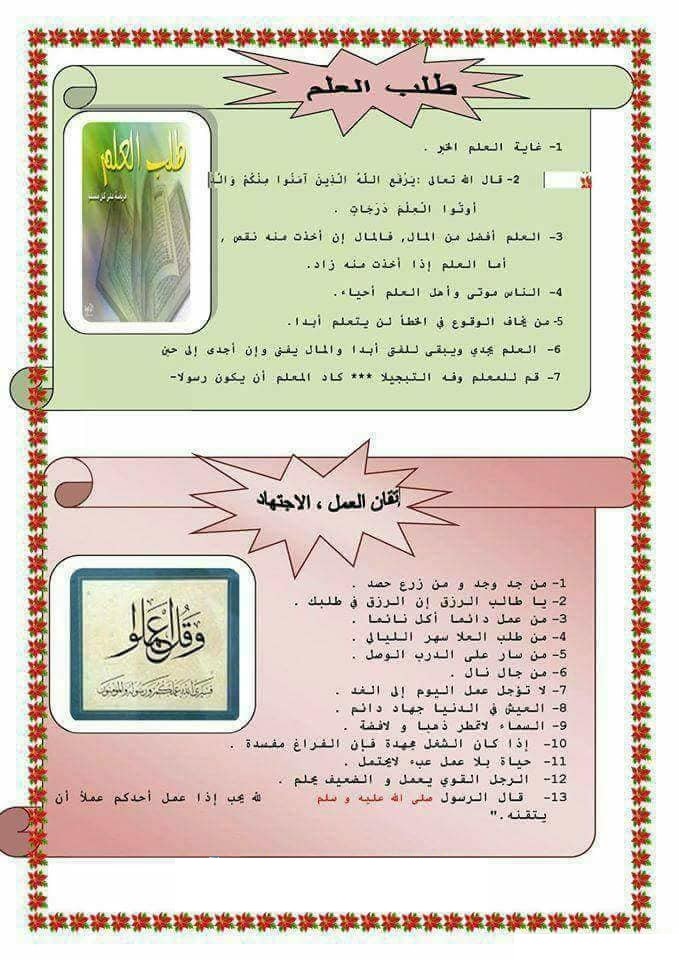 طلب العلم
طلب العلم
فريضة على كل مسلم
1- غاية العلم الخير .
2- قال الله تعالى :يَرْفَعِ اللَّهُ الَّذِينَ آمَنُوا مِنْكُمْ وَالَّذِ
أوتُوا الْعِلْمَ دَرَجَاتٍ .
3- العلم أفضل من المال, فالمال إن أخذت منه نقص ,
أما العلم إذا أخذت منه زاد.
4- الناس موتى وأهل العلم أحياء.
5- من يخاف الوقوع في الخطأ لن يتعلم أبدا.
6- العلم يجدي ويبقى للفتى أبدا والمال يفنى وإن أجدى إلى حين
7- قم للمعلم وفه التبجيلا *** كاد المعلم أن يكون رسولا-
إتقان العمل ، الاجتهاد
وَقُلِ اعْمَلُوا
فسيرى الله عملكم ورسوله والمؤمنون
1- من جد وجد و من زرع حصد .
2- يا طالب الرزق إن الرزق في طلبك .
3- من عمل دائما أكل نائما .
4- من طلب العلا سهر الليالي .
5- من سار على الدرب الوصل .
6- من جال نال .
7- لا تؤجل عمل اليوم إلى الغد .
8- العيش في الدنيا جهاد دائم .
9- السماء لاتمطر ذهبا و لافضة .
10- إذا كان الشغل مجهدة فإن الفراغ مفسدة .
11- حياة بلا عمل عبء لايحتمل .
12- الرجل القوي يعمل و الضعيف يحلم .
13- قال الرسول صلى الله عليه و سلم لله يحب إذا عمل أحدكم عملاً أن
يتقنه."